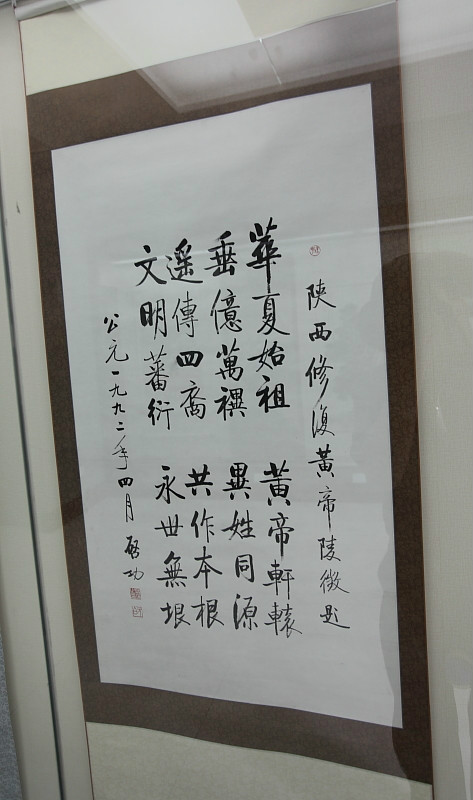 陝西修復黃帝陵徵題
華夏始祖 黃帝軒轅
垂億萬禩 異姓同源
遥傳四裔 共作本根
文明蕃衍 永世無垠
公元一九九二年四月 啓功